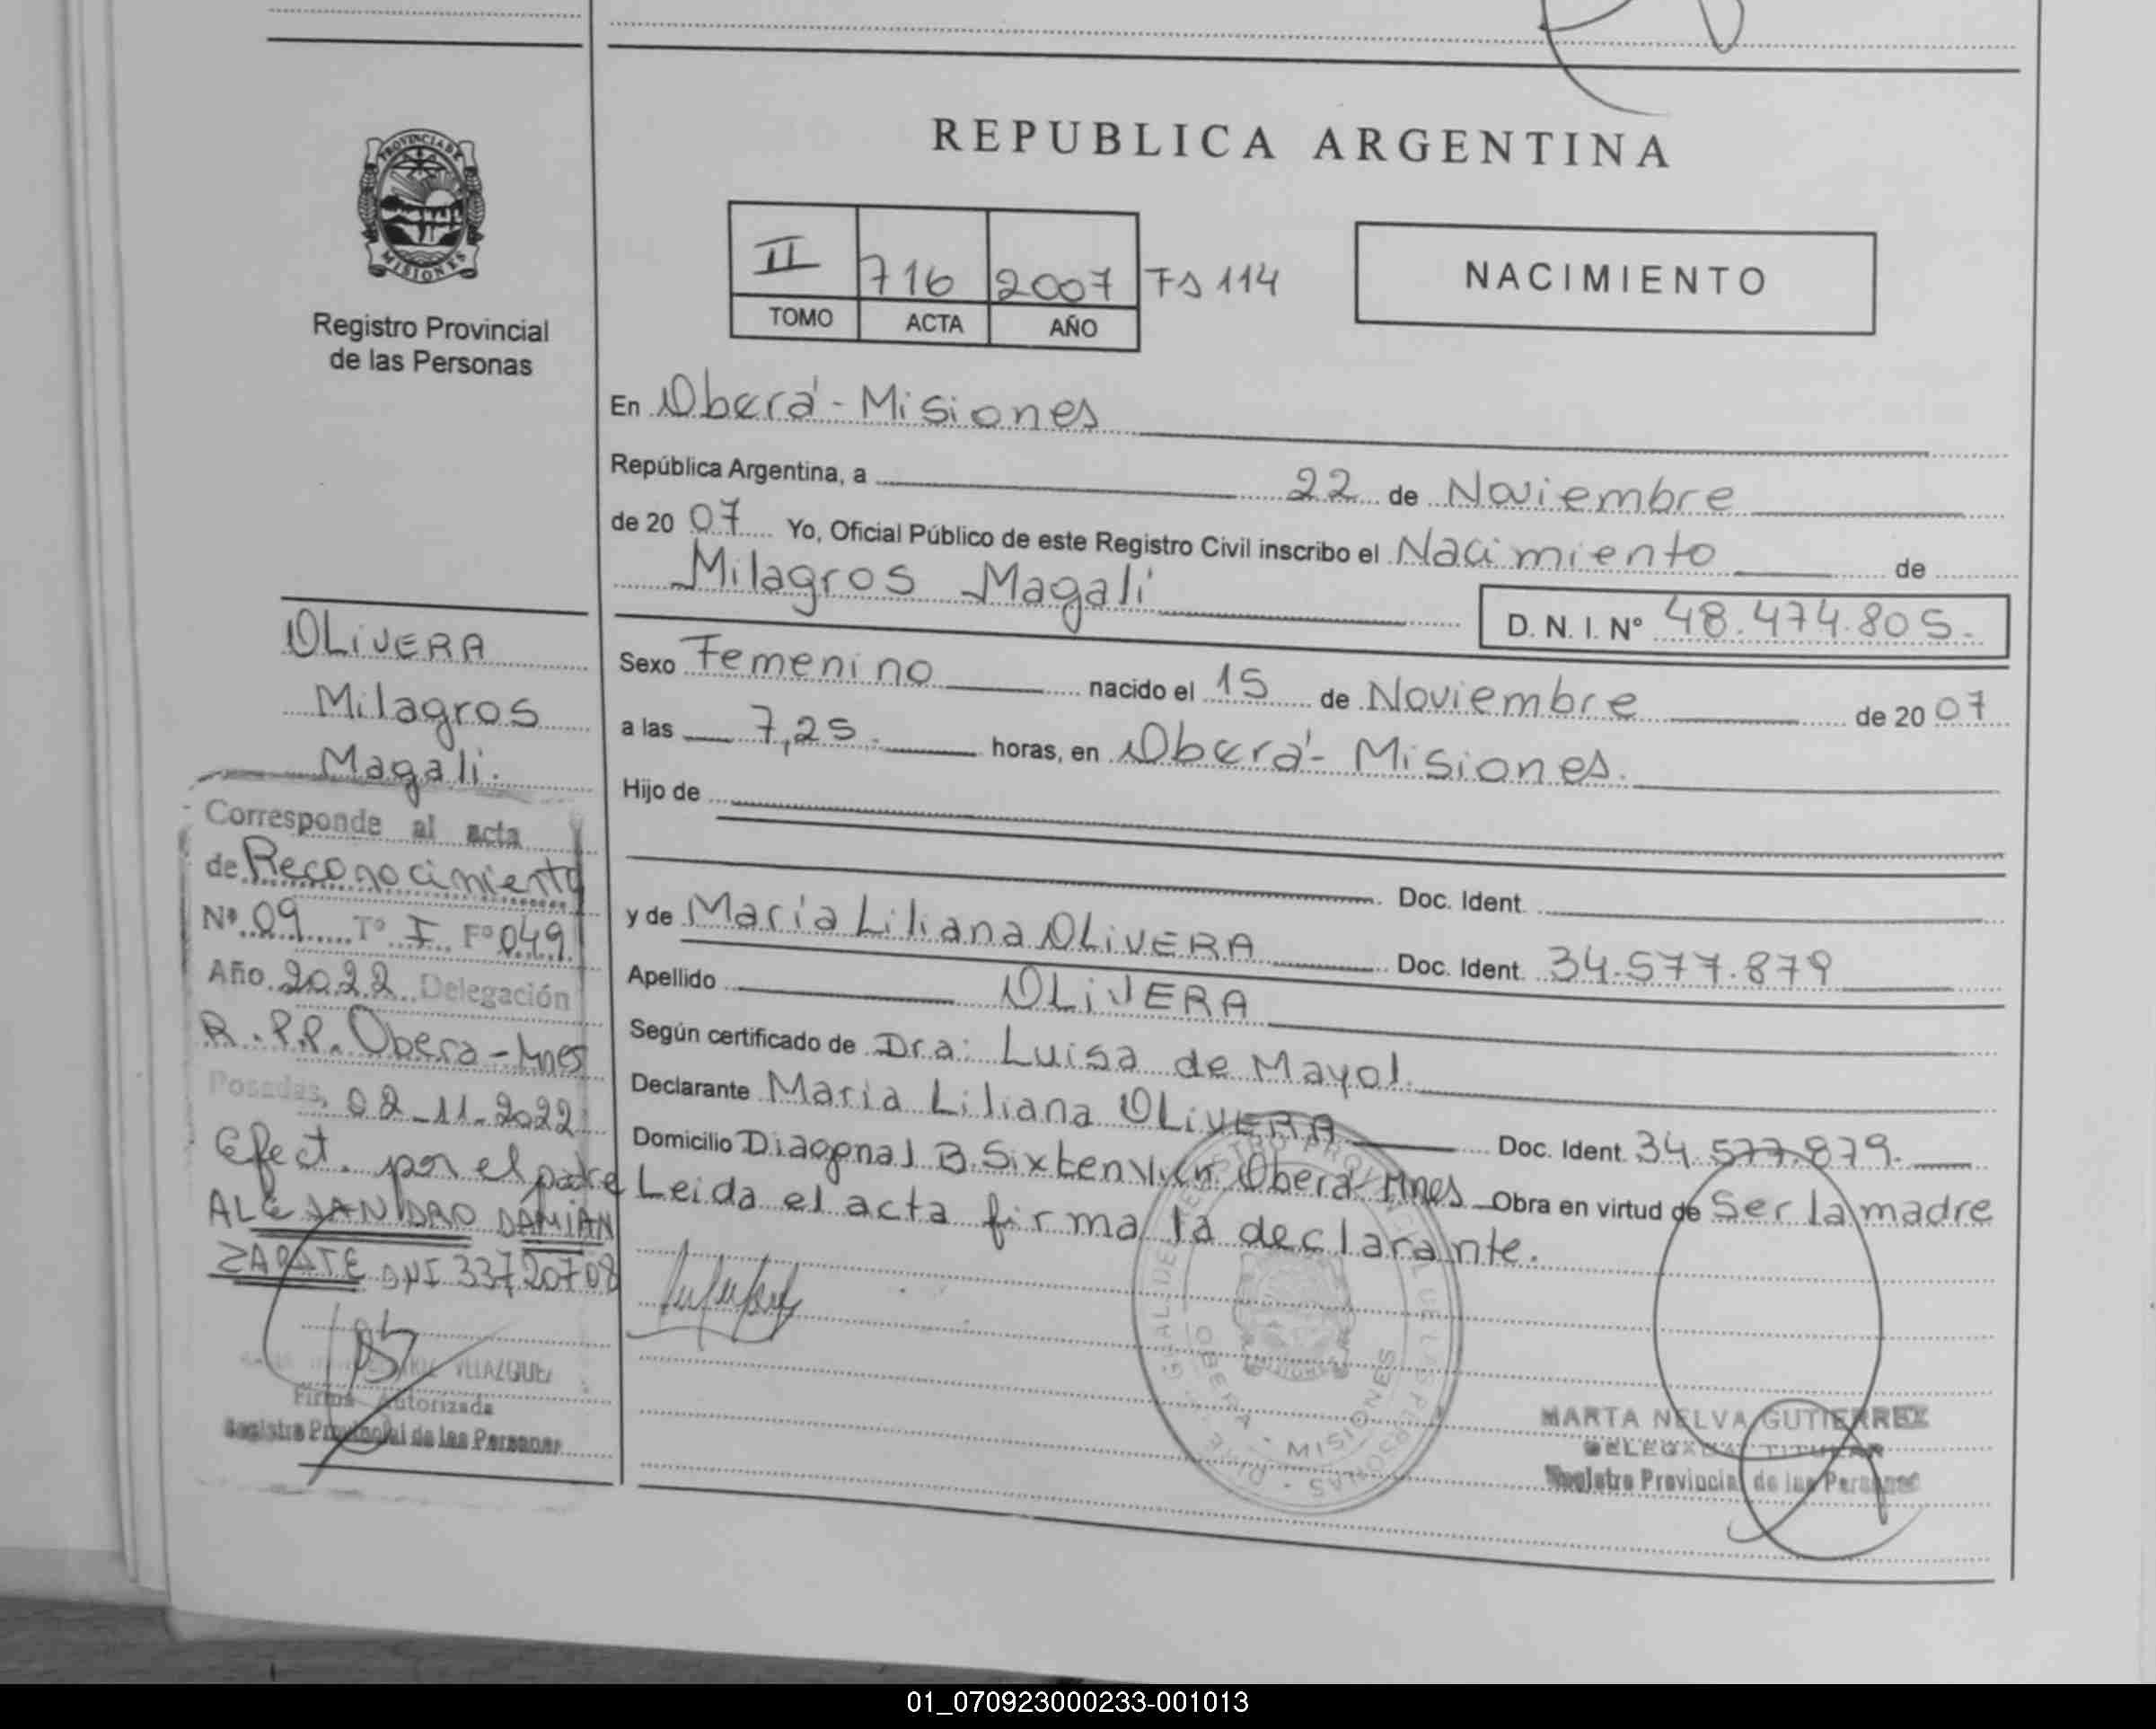 REPUBLICA ARGENTINA
PROVINCIA DE
MISIONES
Registro Provincial
de las Personas
II 716 2007 Fs 114
TOMO ACTA AÑO
NACIMIENTO
En Oberá - Misiones
República Argentina, a 22 de Noviembre
de 20 07 Yo, Oficial Público de este Registro Civil inscribo el Nacimiento de
Milagros Magali
D. N. I. Nº 48.474.805.-
Sexo Femenino nacido el 15 de Noviembre de 20 07
a las 7,25. horas, en Oberá - Misiones.
Hijo de
Doc. Ident.
y de María Liliana OLIVERA Doc. Ident. 34.577.879
Apellido OLIVERA
Según certificado de Dra: Luisa de Mayol.
Declarante Maria Liliana OLIVERA Doc. Ident. 34.577.879.
Domicilio Diagonal B. Sixten Vicn. Oberá - Mnes Obra en virtud de Ser la madre
Leida el acta firma la declarante.
OBERA - MISIONES
MARTA NELVA GUTIERREZ
DELEGADA TITULAR
Registro Provincial de las Personas
OLIVERA
Milagros
Magali.
Corresponde al acta
de Reconocimiento
Nº 09 Tº I Fº 049
Año 2022 Delegación
R.P.P. Obera - Mnes
Posadas, 02-11-2022
Efect. por el padre
ALEJANDRO DAMIÁN
ZARATE DNI 33720708
VELAZQUEZ
Firma Autorizada
Registro Provincial de las Personas
01_070923000233-001013